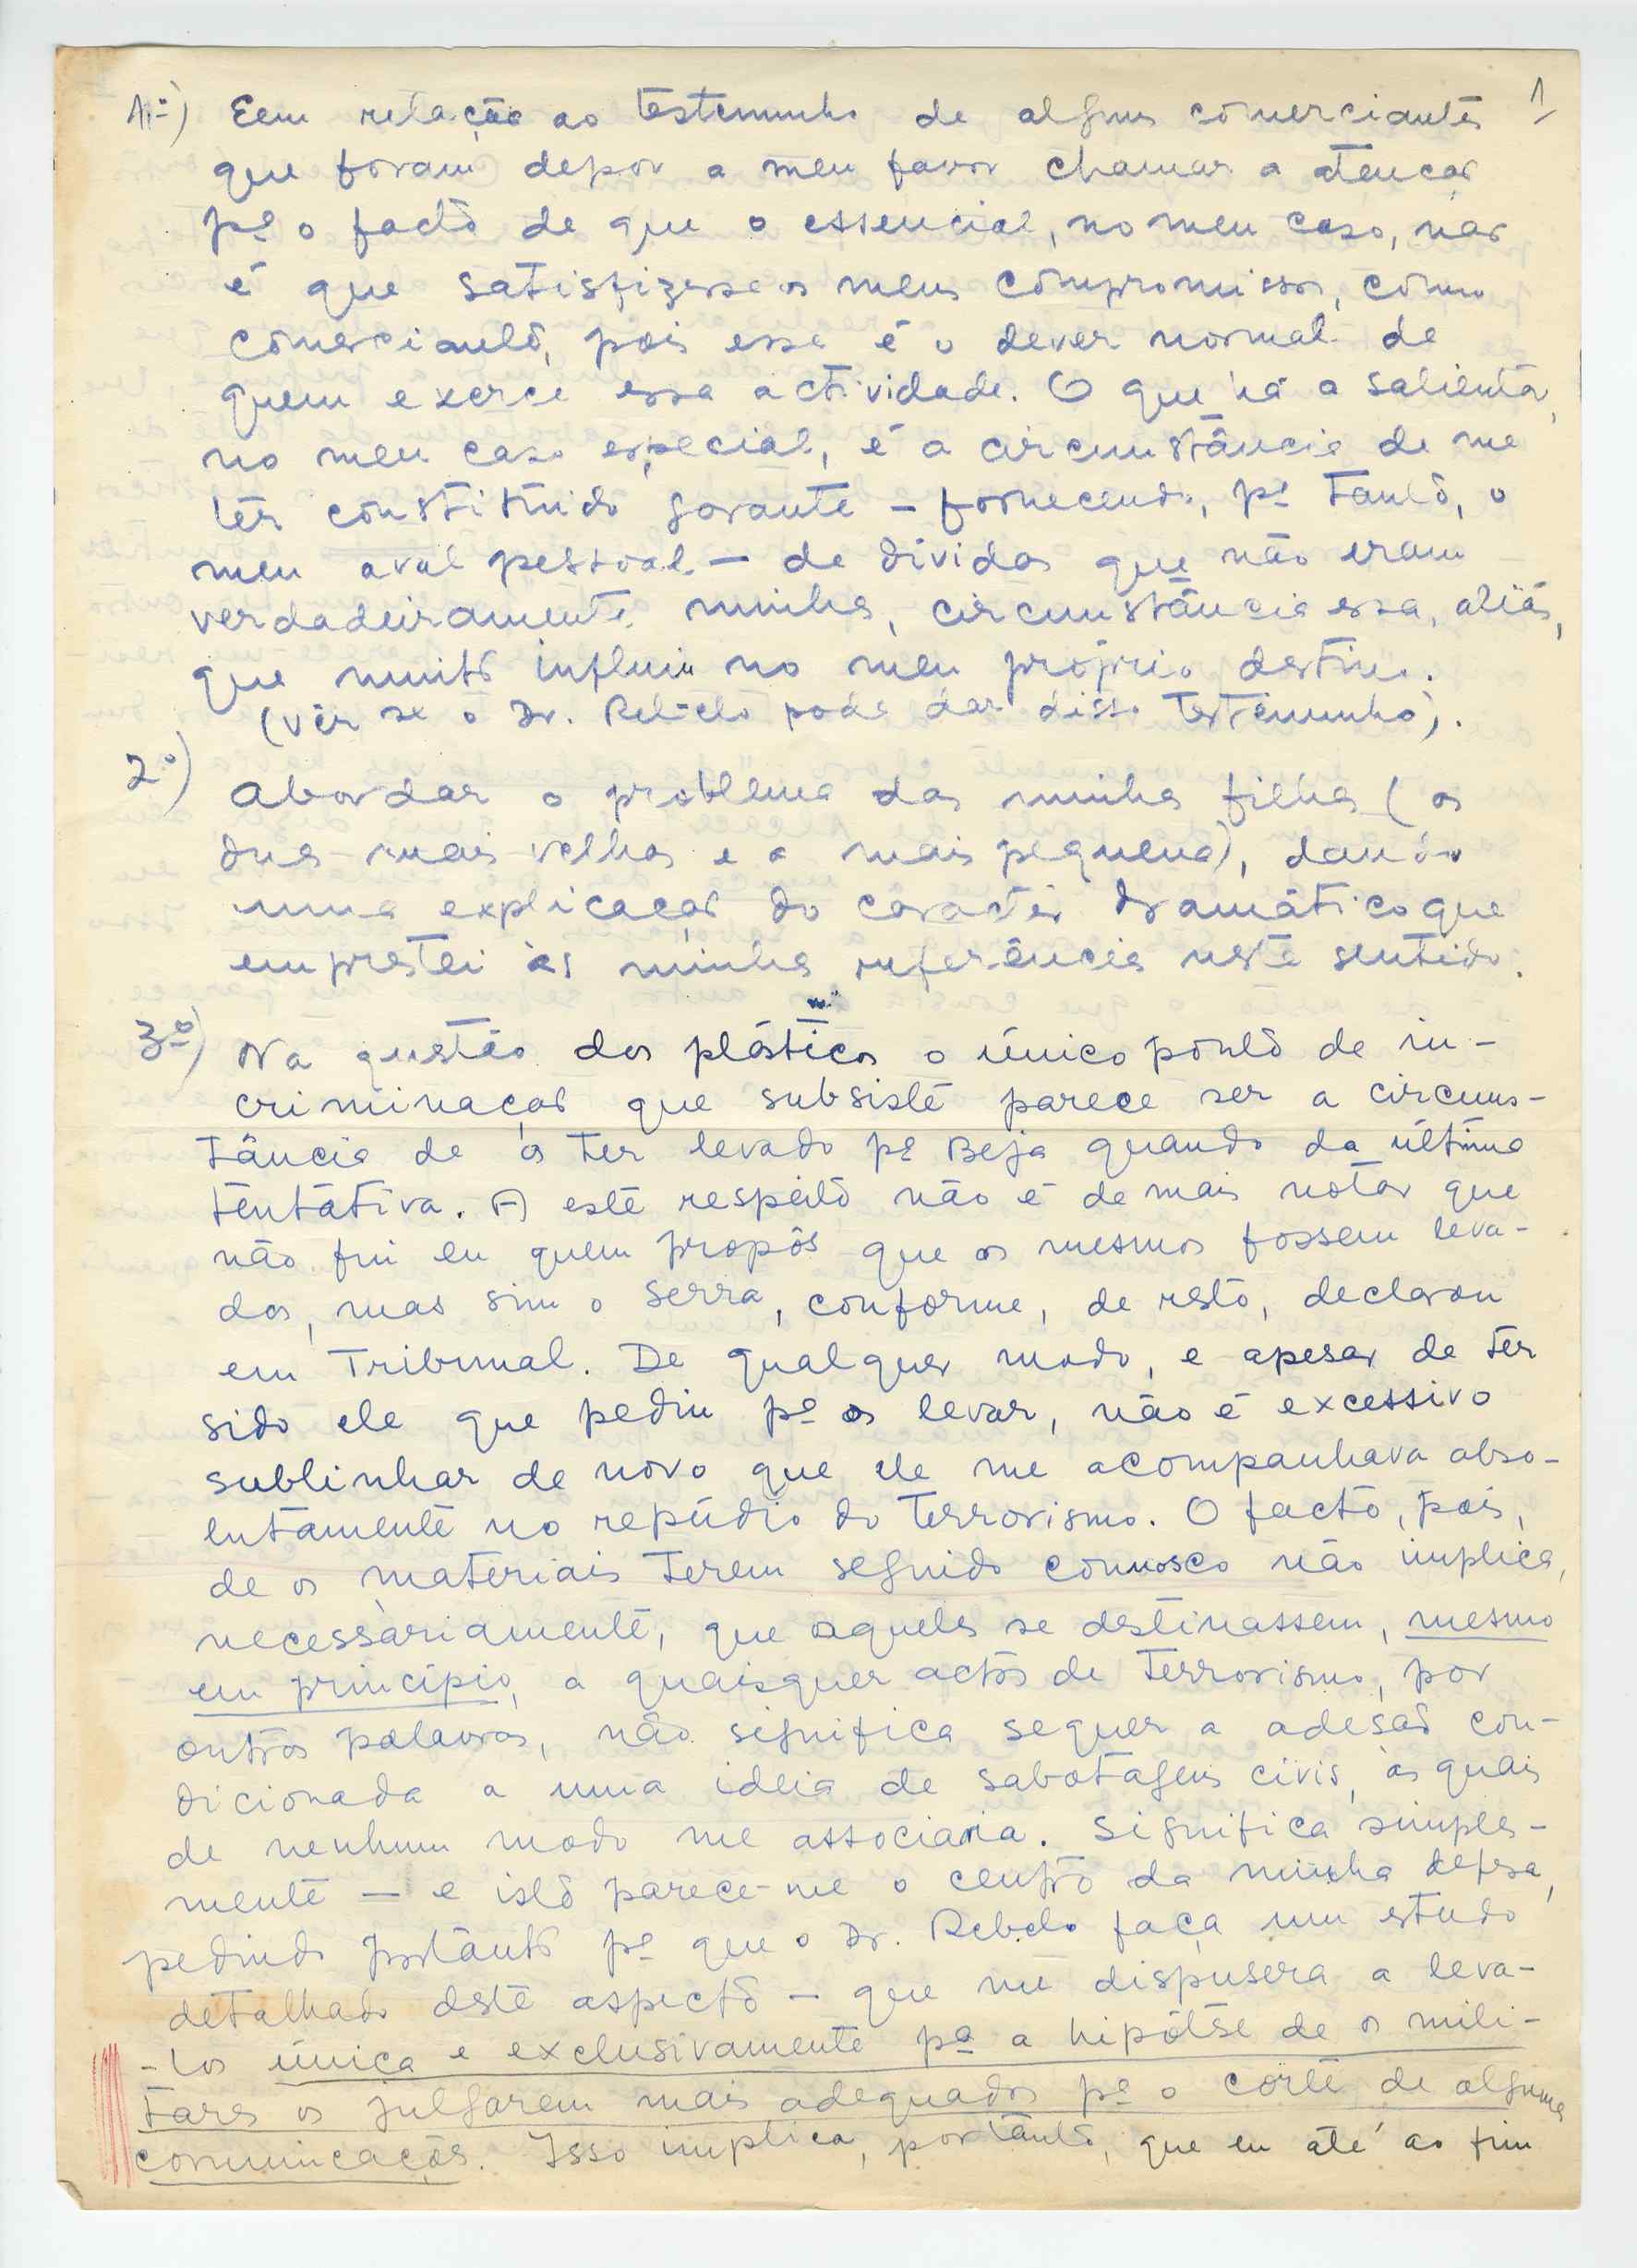 1
1º) Eem relação ao testemunho de alguns comerciantes
que foram depor a meu favor chamar a atenção
pª o facto de que o essencial, no meu caso, não
é que satisfizesse os meus compromissos, como
comerciante, pois esse é o dever normal de
quem exerce essa actividade. O que há a salientar,
no meu caso especial, é a circunstância de me
ter constituído garante – fornecendo, pª tanto, o
meu aval pessoal – de dívidas que não eram
verdadeiramente minhas, circunstância essa, aliás,
que muito influiu no meu próprio destino.
(vêr se o Dr. Rebelo pode dar disso testemunho).
2º) Abordar o problema das minhas filhas (as
duas mais velhas e a mais pequena), dando
uma explicação do carácter dramático que
emprestei às minhas referências neste sentido.
3º) Na questão dos plásticos o único ponto de in-
criminação que subsiste parece ser a circuns-
tância de os ter levado pª Beja quando da última
tentativa. A este respeito não é demais notar que
não fui eu quem propôs que os mesmos fossem leva-
dos, mas sim o Serra, conforme, de resto, declarou
em Tribunal. De qualquer modo, e apesar de ter
sido ele que pediu pª os levar, não é excessivo
sublinhar de novo que ele me acompanhava abso-
lutamente no repúdio do terrorismo. O facto, pois,
de os materiais terem seguido connosco não implica,
necessàriamente, que aqueles se destinassem, mesmo
em princípio, a quaisquer actos de terrorismo, por
outras palavras, não significa sequer a adesão con-
dicionada a uma ideia de sabotagens civis, às quais
de nenhum modo me associaria. Significa simples-
mente – e isto parece-me o centro da minha defesa,
pedindo portanto pª que o Dr. Rebelo faça um estudo
detalhado deste aspecto – que me dispusera a leva-
-los única e exclusivamente pª a hipótese de os mili-
tares os julgarem mais adequados pª o corte de algumas
comunicações. Isso implica, portanto, que eu até ao fim